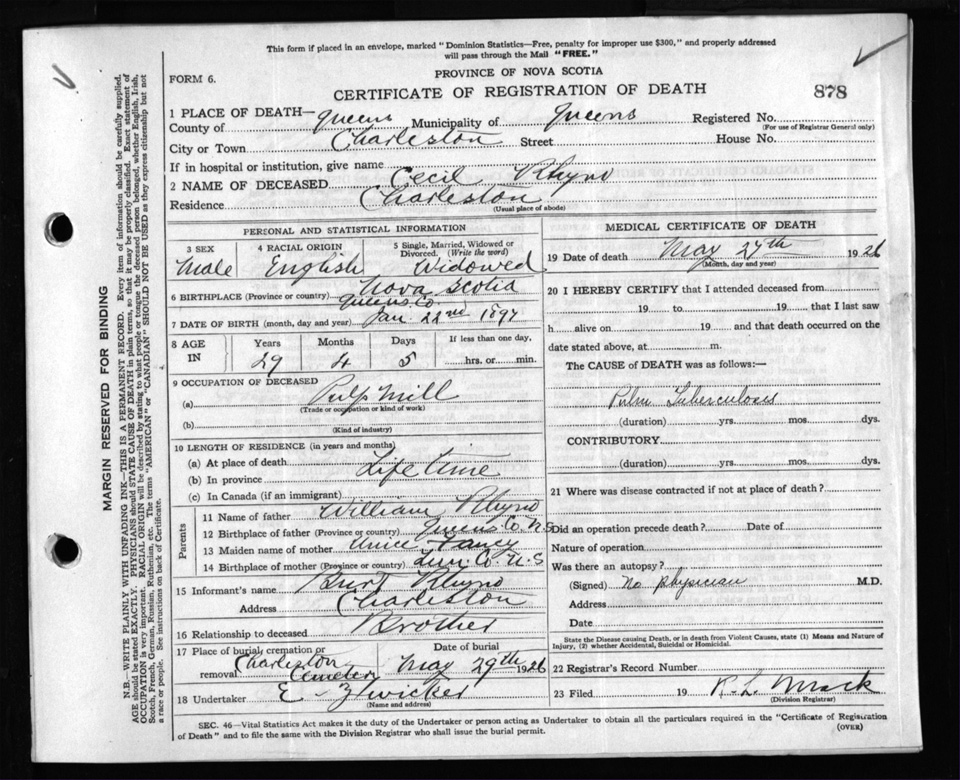 This form if placed in an envelope, marked "Dominion Statistics—Free, penalty for improper use $300," and properly addressed
will pass through the Mail "FREE."
FORM 6.
PROVINCE OF NOVA SCOTIA
CERTIFICATE OF REGISTRATION OF DEATH
878
1 PLACE OF DEATH—
County of Queens Municipality of Queens Registered No.
(For use of Registrar General only)
City or Town Charleston Street House No.
If in hospital or institution, give name
2 NAME OF DECEASED Cecil Rhyno
Residence Charleston
(Usual place of abode)
PERSONAL AND STATISTICAL INFORMATION
3 SEX Male
4 RACIAL ORIGIN English
5 Single, Married, Widowed or Divorced. (Write the word) Widowed
6 BIRTHPLACE (Province or country) Nova Scotia
Queens Co.
7 DATE OF BIRTH (month, day and year) Jan. 22nd 1897
8 AGE IN Years 29 Months 4 Days 5 If less than one day, hrs. or min.
9 OCCUPATION OF DECEASED
(a) Pulp Mill
(Trade or occupation or kind of work)
(b)
(Kind of industry)
10 LENGTH OF RESIDENCE (in years and months)
(a) At place of death Life time
(b) In province
(c) In Canada (if an immigrant)
Parents
11 Name of father William Rhyno
12 Birthplace of father (Province or country) Queens Co. N.S
13 Maiden name of mother Fancy
14 Birthplace of mother (Province or country) Lun Co. N.S
15 Informant's name Burt Rhyno
Address Charleston
16 Relationship to deceased Brother
17 Place of burial, cremation or removal Charleston Cemetery
Date of burial May 29th 1926
18 Undertaker E Zwicker
(Name and address)
MEDICAL CERTIFICATE OF DEATH
19 Date of death May 27th 1926
(Month, day and year)
20 I HEREBY CERTIFY that I attended deceased from
19 to 19 that I last saw
h alive on 19 and that death occurred on the
date stated above, at m.
The CAUSE OF DEATH was as follows:—
Pulm Tuberculosis
(duration) yrs. mos. dys.
CONTRIBUTORY
(duration) yrs. mos. dys.
21 Where was disease contracted if not at place of death?
Did an operation precede death? Date of
Nature of operation
Was there an autopsy?
(Signed) No physician M.D.
Address
Date
State the Disease causing Death, or in death from Violent Causes, state (1) Means and Nature of
Injury, (2) whether Accidental, Suicidal or Homicidal.
22 Registrar's Record Number
23 Filed 19 R. L. Mack
(Division Registrar)
SEC. 46—Vital Statistics Act makes it the duty of the Undertaker or person acting as Undertaker to obtain all the particulars required in the "Certificate of Registration
of Death" and to file the same with the Division Registrar who shall issue the burial permit.
(OVER)
MARGIN RESERVED FOR BINDING
N.B.—WRITE PLAINLY WITH UNFADING INK—THIS IS A PERMANENT RECORD. Every item of information should be carefully supplied.
AGE should be stated EXACTLY. PHYSICIANS should STATE CAUSE OF DEATH in plain terms, so that it may be properly classified. Exact statement of
OCCUPATION is very important. RACIAL ORIGIN will be described by stating to what people or tongue the deceased person belonged, whether English, Irish,
Scotch, French, German, Russian, Ruthenian, etc. The terms "AMERICAN" or "CANADIAN" SHOULD NOT BE USED as they express citizenship but not
a race or people. See instructions on back of Certificate.